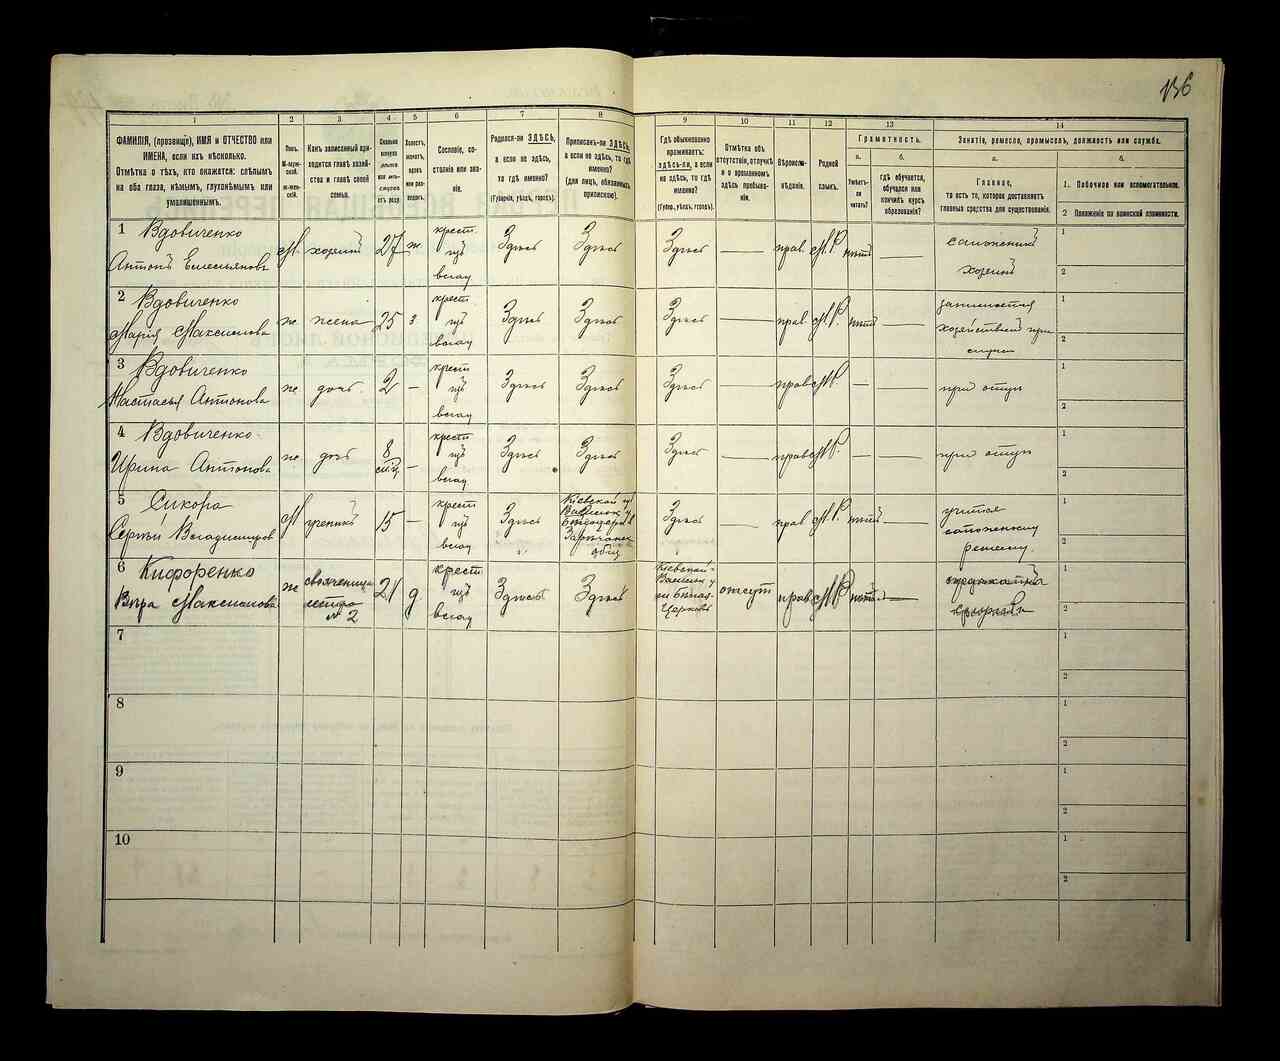 136
1 2 3 4 5 6 7 8 9 10 11 12 13 14
ФАМИЛІЯ, (прозвище), ИМЯ и ОТЧЕСТВО или
ИМЕНА, если ихъ нѣсколько.
Отмѣтка о тѣхъ, кто окажется: слѣпымъ
на оба глаза, нѣмымъ, глухонѣмымъ или
умалишеннымъ.
Полъ.
М-муж-
ской.
Ж-жен-
скій.
Какъ записанный при-
ходится главѣ хозяй-
ства и главѣ своей
семьи.
Сколько
минуло
лѣтъ
или мѣ-
сяцевъ
отъ роду.
Холостъ,
женатъ,
вдовъ
или раз-
веденъ.
Сословіе, со-
стояніе или зва-
ніе.
Родился-ли ЗДѢСЬ,
а если не здѣсь,
то гдѣ именно?
(Губернія, уѣздъ, городъ).
Приписанъ-ли ЗДѢСЬ,
а если не здѣсь, то гдѣ
именно?
(для лицъ, обязанныхъ
припискою).
Гдѣ обыкновенно
проживаетъ:
здѣсь-ли, а если
не здѣсь, то гдѣ
именно?
(Губер., уѣздъ, городъ).
Отмѣтка объ
отсутствіи, отлучкѣ
и о временномъ
здѣсь пребыва-
ніи.
Вѣроиспо-
вѣданіе.
Родной
языкъ.
Грамотность.
а.
Умѣетъ-
ли
читать?
б.
гдѣ обучается,
обучался или
кончилъ курсъ
образованія?
Занятіе, ремесло, промыселъ, должность или служба.
а.
Главное,
то есть то, которое доставляетъ
главныя средства для существованія.
б.
1. Побочное или вспомогательное.
2 Положеніе по воинской повинности.
1 Вдовиченко
Антонъ Емельяновъ
М. хозяинъ 27 ж. крест. изъ влад. Здѣсь Здѣсь Здѣсь — прав. М.Р. нѣтъ —
сапожникъ
хозяинъ
1
2
2 Вдовиченко
Марія Максимова
ж жена 25 з крест. изъ влад. Здѣсь Здѣсь Здѣсь — прав. М.Р. нѣтъ —
занимается
хозяйствомъ при
1
2
3 Вдовиченко
Настасья Антонова
ж дочь. 2 — крест. изъ влад. Здѣсь Здѣсь Здѣсь прав М.Р. — —
при отцѣ
1
2
4 Вдовиченко
Ирина Антонова
ж дочь 8 — крест изъ влад. Здѣсь Здѣсь Здѣсь — прав М.Р. — —
при отцѣ
1
2
5 Сикора
Сергѣй Владиміровъ
М ученикъ 15 — крест изъ влад. Здѣсь
Кіевской гу
Здѣсь — прав М.Р. нѣтъ —
учится
сапожному
ремеслу.
1
2
6 Кифоренко
Вѣра Максимова
ж свояченица
сестра
№ 2
21 д. крест изъ влад. Здѣсь Здѣсь
Кіевской
Церковь
отсут прав М.Р. нѣтъ —
1
2
7
1
2
8
1
2
9
1
2
10
1
2